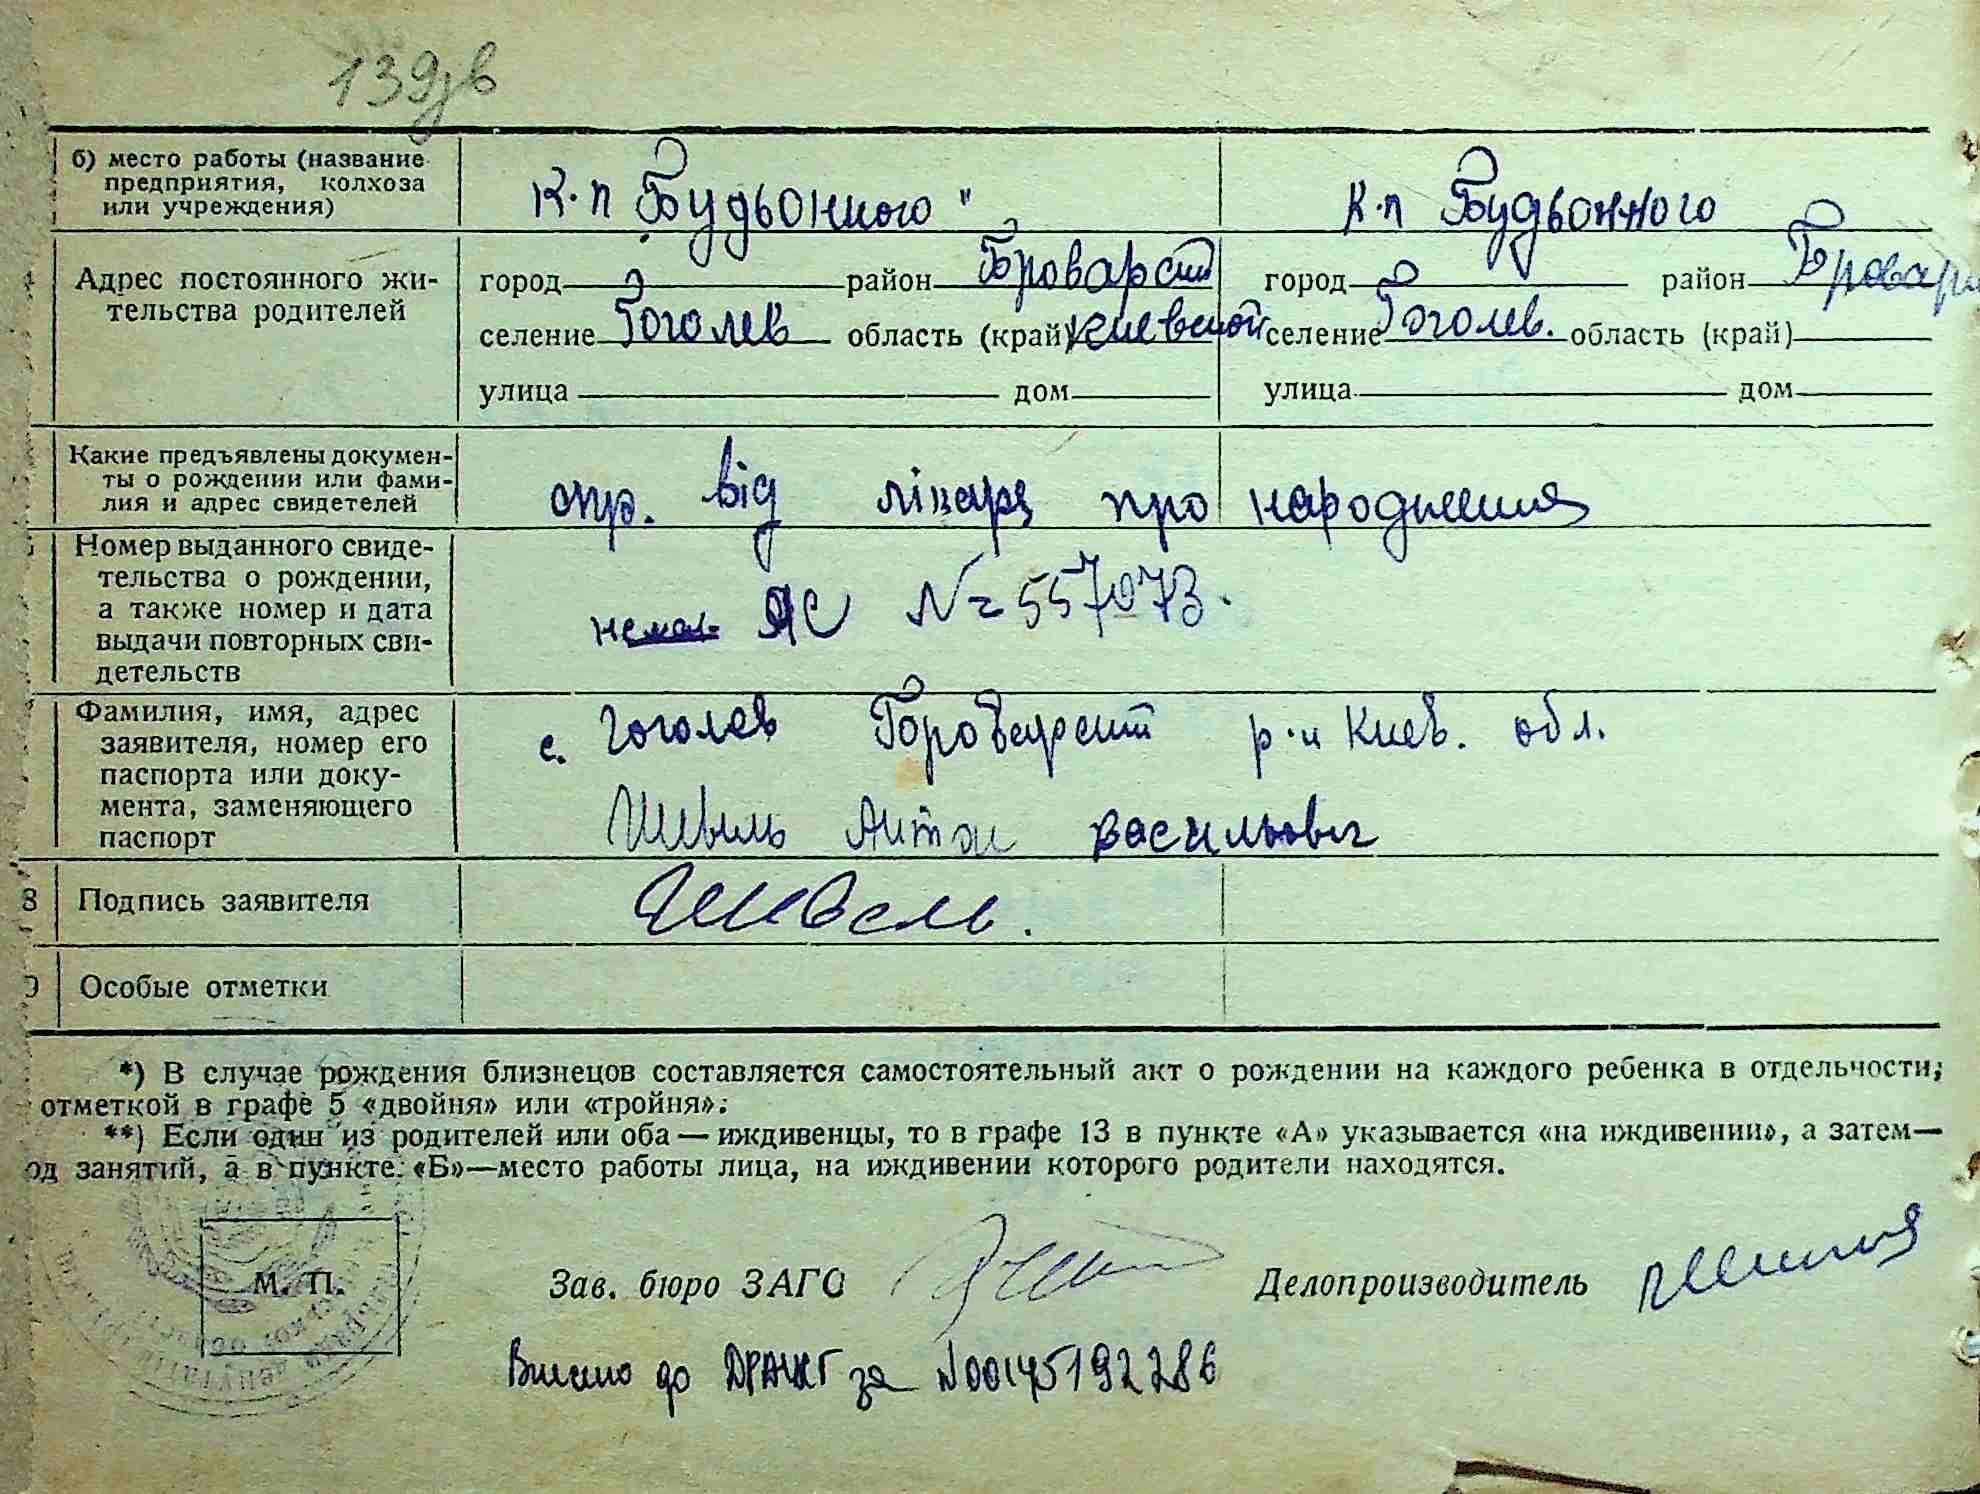 139зв
б) место работы (название предприятия, колхоза или учреждения)
к-п Будьонного"
к-п Будьонного
Адрес постоянного жительства родителей
город район Броварский
селение Гоголев область (край) Киевской
улица дом
город район Бровар
селение Гоголев. область (край)
улица дом
Какие предъявлены документы о рождении или фамилия и адрес свидетелей
спр. від лікаря про народження
Номер выданного свидетельства о рождении, а также номер и дата выдачи повторных свидетельств
ЯС № 557073.
Фамилия, имя, адрес заявителя, номер его паспорта или документа, заменяющего паспорт
с. Гоголев Броварский р-н Киев. обл.
Швыль Антон Васильович
8 Подпись заявителя
Швель.
9 Особые отметки
*) В случае рождения близнецов составляется самостоятельный акт о рождении на каждого ребенка в отдельности,
отметкой в графе 5 «двойня» или «тройня».
**) Если один из родителей или оба — иждивенцы, то в графе 13 в пункте «А» указывается «на иждивении», а затем—
од занятий, а в пункте «Б»—место работы лица, на иждивении которого родители находятся.
М. П.
Зав. бюро ЗАГС
Делопроизводитель
Внесено до ДРАЦСГ за №00145192286